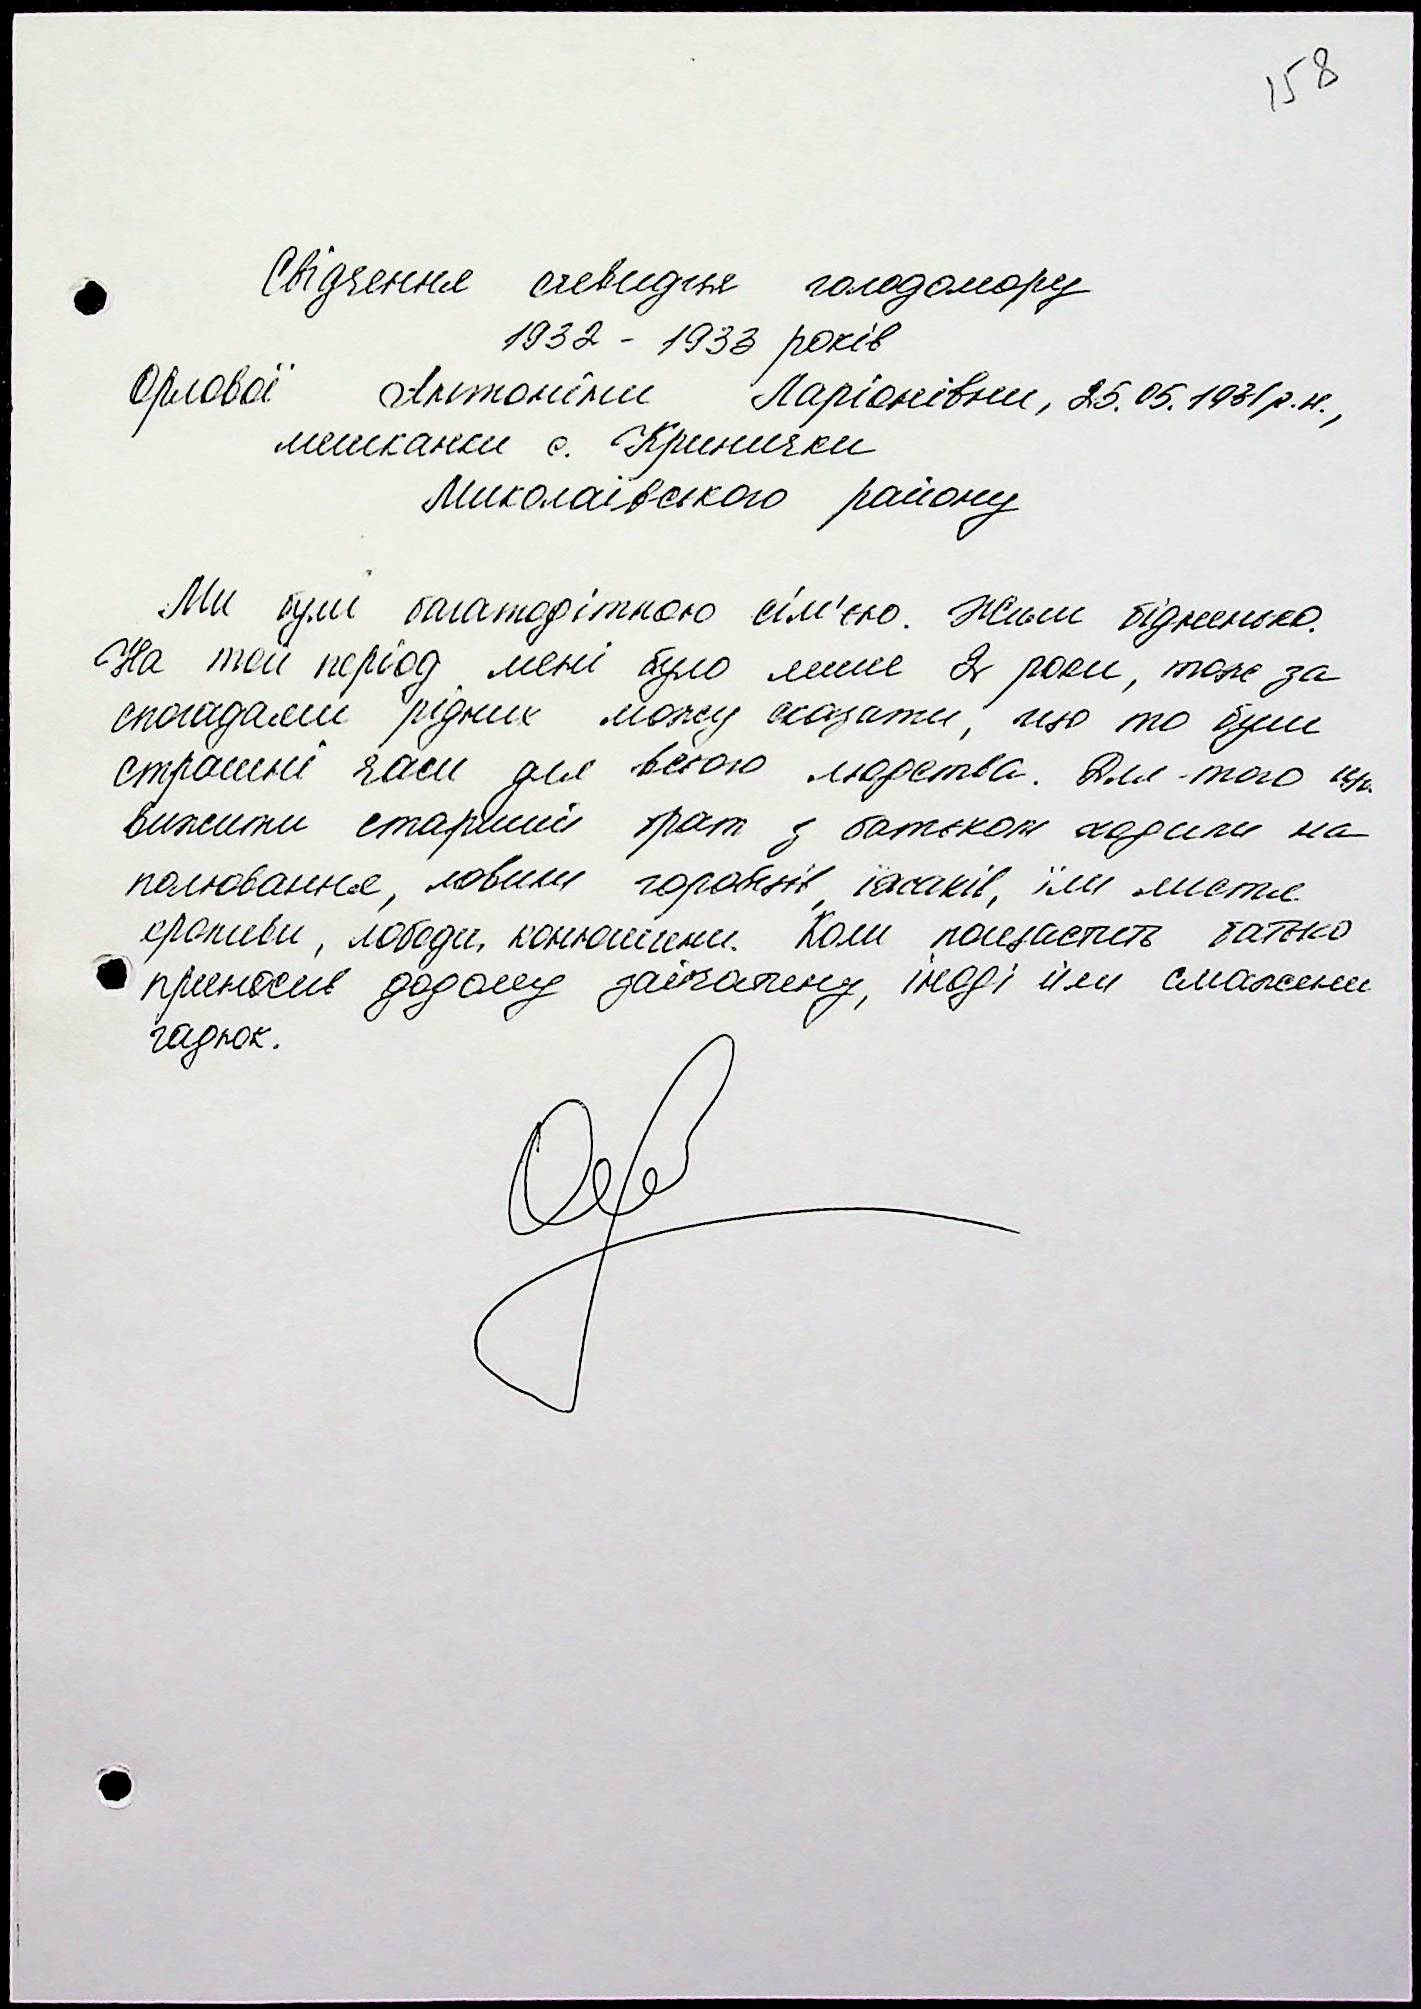 158
Свідчення очевидця голодомору
1932 - 1933 років
Орлової Антоніни Ларіонівни, 25.05.1931 р.н.,
мешканки с. Кринички
Миколаївського району
Ми були багатодітною сім'єю. Жили бідненько.
На той період мені було лише 2 роки, тож за
спогадами рідних можу сказати, що то були
страшні часи для всього людства. Для того що
вижити старший брат з батьком ходили на
полювання, ловили горобців, їжаків, їли листя
кропиви, лободи, конюшини. Коли пощастить батько
приносив додому зайчатину, іноді їли смажених
гадюк.